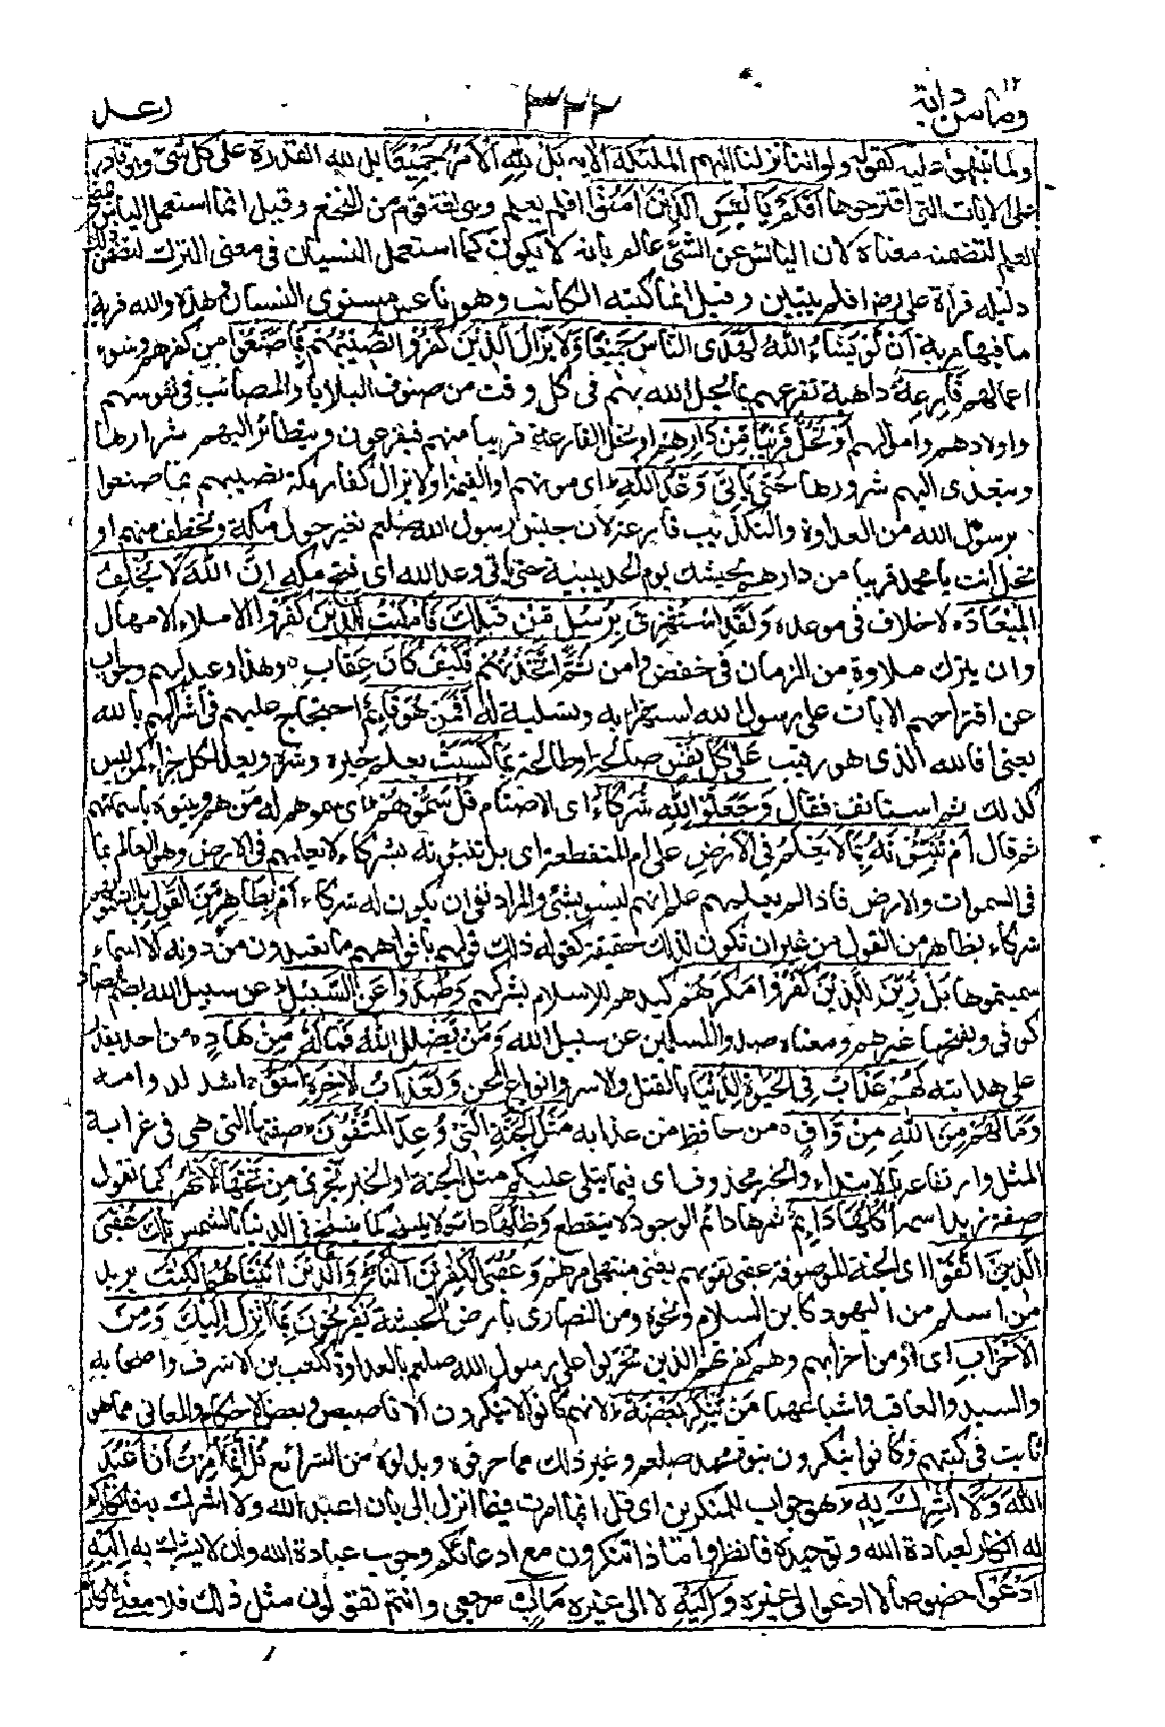 ١٢
وما من دابة
٣٢٢
رعد
ولما تنبهوا عليه كقوله ولو اننا نزلنا اليهم الملئكة الآية بَلْ لِلّٰهِ الْاَمْرُ جَمِيْعًا بل لله القدرة على كل شئ وهو قادر
على الايات التى اقترحوها اَفَلَمْ يَايْئَسِ الَّذِيْنَ اٰمَنُوْا افلم يعلم وهى لغة قوم من النخع وقيل انما استعمل الياس بمعنى
العلم لتضمنه معناه لان اليائس عن الشئ عالم بانه لا يكون كما استعمل النسيان فى معنى الترك لتضمن ذلك
دليله قرأة على رض افلم يتبين وقيل انما كتبه الكاتب وهو ناعس مستوى السنان وهذه والله فرية
ما فيها مرية اَنْ لَّوْ يَشَاءُ اللّٰهُ لَهَدَى النَّاسَ جَمِيْعًا وَلَا يَزَالُ الَّذِيْنَ كَفَرُوْا تُصِيْبُهُمْ بِمَا صَنَعُوْا من كفرهم وسوء
اعمالهم قَارِعَةٌ داهية تقرعهم بما يحل الله بهم فى كل وقت من صنوف البلايا والمصائب فى نفوسهم
واولادهم واموالهم اَوْ تَحُلُّ قَرِيْبًا مِّنْ دَارِهِمْ او تحل القارعة قريبا منهم فيفزعون ويتطائر اليهم شرارها
ويتعدى اليهم شرورها حَتّٰى يَاْتِىَ وَعْدُ اللّٰهِ اى موتهم او القيمة او لا يزال كفار مكة تصيبهم بما صنعوا
برسول الله من العداوة والتكذيب قارعة لان جيش رسول الله صلعم تغير حول مكة وتختطف منهم او
تحل انت يا محمد قريبا من دارهم بجيشك يوم الحديبية حتى ياتى وعد الله اى فتح مكة اِنَّ اللّٰهَ لَا يُخْلِفُ
الْمِيْعَادَ ه لا خلاف فى موعده وَلَقَدِ اسْتُهْزِئَ بِرُسُلٍ مِّنْ قَبْلِكَ فَاَمْلَيْتُ لِلَّذِيْنَ كَفَرُوْا الاملاء الامهال
وان يترك ملاوة من الزمان فى خفض وامن ثُمَّ اَخَذْتُهُمْ فَكَيْفَ كَانَ عِقَابِ ه وهذا وعيد لهم وجواب
عن اقتراحهم الايات على رسول الله استهزاء به وتسلية له اَفَمَنْ هُوَ قَائِمٌ احتجاج عليهم فى اشراكهم بالله
يعنى افالله الذى هو رقيب عَلٰى كُلِّ نَفْسٍ صالحة او طالحة بِمَا كَسَبَتْ يعلم خيره وشره ويعد لكل جزاءه كمن ليس
كذلك ثم استانف فقال وَجَعَلُوْا لِلّٰهِ شُرَكَاءَ اى الاصنام قُلْ سَمُّوْهُمْ اى سموهم له من هم ونبئوه باسمائهم
ثم قال اَمْ تُنَبِّئُوْنَهٗ بِمَا لَا يَعْلَمُ فِى الْاَرْضِ على ام المنقطعة اى بل تنبئونه بشركاء لا يعلمهم فى الارض وهو العالم بما
فى السموات والارض فاذا لم يعلمهم علم انهم ليسو بشئ والمراد نفى ان يكون له شركاء اَمْ بِظَاهِرٍ مِّنَ الْقَوْلِ بل اتسمونهم
شركاء بظاهر من القول من غير ان تكون لذلك حقيقة كقوله ذلك قولهم بافواههم ما تعبدون من دونه الا اسماء
سميتموها بَلْ زُيِّنَ لِلَّذِيْنَ كَفَرُوْا مَكْرُهُمْ كيدهم للاسلام بشركهم وَصُدُّوْا عَنِ السَّبِيْلِ عن سبيل الله بضم الصاد
كوفى وبفتحها غيرهم ومعناه صدوا المسلمين عن سبيل الله وَمَنْ يُّضْلِلِ اللّٰهُ فَمَا لَهٗ مِنْ هَادٍ ه من احد يقدر
على هدايته لَهُمْ عَذَابٌ فِى الْحَيٰوةِ الدُّنْيَا بالقتل والاسر وانواع المحن وَلَعَذَابُ الْاٰخِرَةِ اَشَقُّ اشد لدوامه
وَمَا لَهُمْ مِّنَ اللّٰهِ مِنْ وَّاقٍ ه من حافظ من عذابه مَثَلُ الْجَنَّةِ الَّتِىْ وُعِدَ الْمُتَّقُوْنَ صفتها التى هى فى غرابة
المثل وارتفاعه بالابتداء والخبر محذوف اى فيما يتلى عليكم مثل الجنة او الخبر تَجْرِىْ مِنْ تَحْتِهَا الْاَنْهٰرُ كما تقول
صفة زيد اسمر اُكُلُهَا دَائِمٌ ثمرها دائم الوجود لا ينقطع وَظِلُّهَا دائم لا ينسخ كما ينسخ فى الدنيا بالشمس تِلْكَ عُقْبَى
الَّذِيْنَ اتَّقَوْا اى الجنة الموصوفة عقبى تقوىهم يعنى منتهى امرهم وَعُقْبَى الْكٰفِرِيْنَ النَّارُ وَالَّذِيْنَ اٰتَيْنٰهُمُ الْكِتٰبَ يريد
من اسلم من اليهود كابن السلام ونحوه ومن النصارى بارض الحبشة يَفْرَحُوْنَ بِمَا اُنْزِلَ اِلَيْكَ وَمِنَ
الْاَحْزَابِ اى ومن احزابهم وهم كفرتهم الذين تحزبوا على رسول الله صلعم بالعداوة ككعب بن الاشرف واصحابه
والسيد والعاقب واشياعهما مَنْ يُّنْكِرُ بَعْضَهٗ لانهم كانوا لا ينكرون الاقاصيص وبعض الاحكام والمعانى مما هو
ثابت فى كتبهم وكانوا ينكرون نبوة محمد صلعم وغير ذلك مما حرفوه وبدلوه من الشرائع قُلْ اِنَّمَا اُمِرْتُ اَنْ اَعْبُدَ
اللّٰهَ وَلَا اُشْرِكَ بِهٖ هو جواب للمنكرين اى قل انما امرت فيما انزل الى بان اعبد الله ولا اشرك به فانكاركم
له انكار لعبادة الله وتوحيده فانظروا ماذا تنكرون مع ادعائكم وجوب عبادة الله وان لا يشرك به اِلَيْهِ
اَدْعُوْا خصوصا لا ادعوا الى غيره وَاِلَيْهِ لا الى غيره مَاٰبِ مرجعى وانتم تقولون مثل ذلك فلا معنى لانكاركم